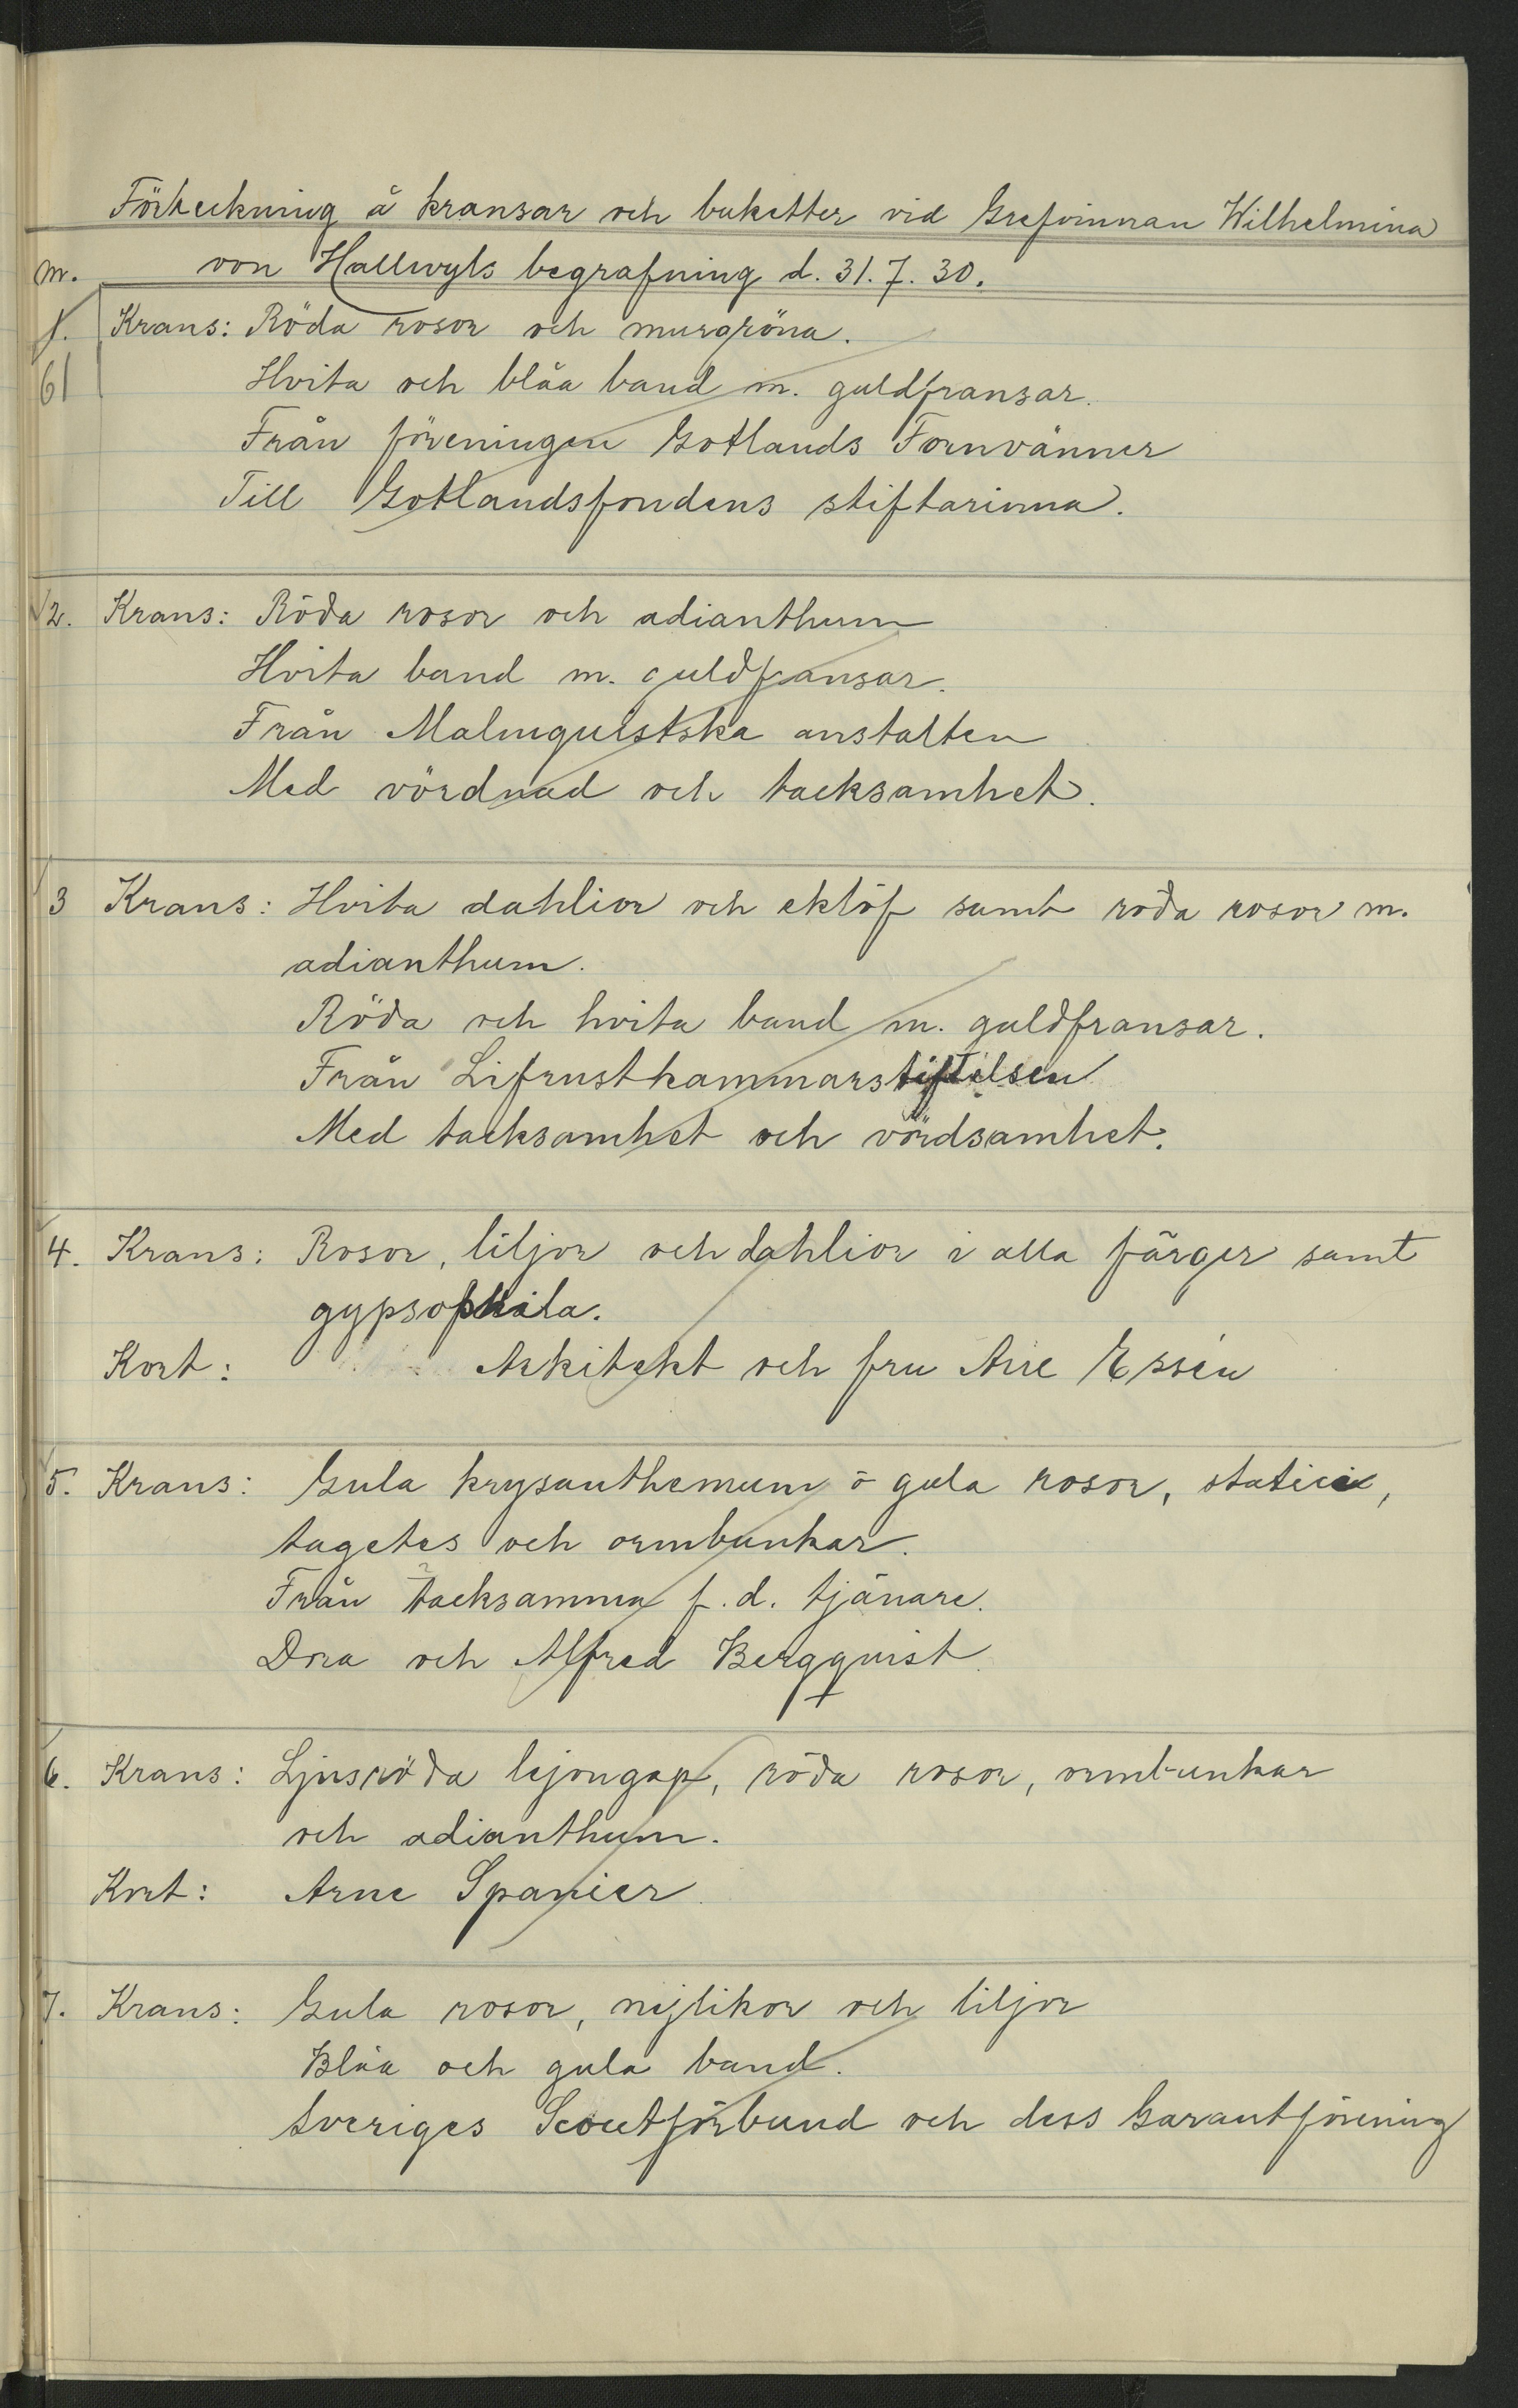 Förteckning å kransar och buketter vid Grefvinnan Wilhelmina
m. von Hallwyls begrafning d. 31. 7. 30.
1. Krans: Röda rosor och murgröna.
61 Hvita och blåa band m. guldfransar.
Från föreningen Gotlands Fornvänner
Till Gotlandsfondens stiftarinna.
2. Krans: Röda rosor och adianthum
Hvita band m. guldfransar.
Från Malmquistska anstalten
Med vördnad och tacksamhet.
3 Krans: Hvita dahlior och eklöf samt röda rosor m.
adianthum.
Röda och hvita band m. guldfransar.
Från Lifrustkammarstiftelsen
Med tacksamhet och vördsamhet.
4. Krans: Rosor, liljor och dahlior i alla färger samt
gypsophila.
Kort: Arkitekt och fru Aire Essén
5. Krans: Gula krysanthemum o gula rosor, statice,
tagetes och ormbunkar.
Från tacksamma f. d. tjänare.
Dora och Alfred Bergqvist
6. Krans: Ljusröda lejongap, röda rosor, ormbunkar
och adianthum.
Kort: Arne Spanier.
7. Krans: Gula rosor, nejlikor och liljor
Blåa och gula band.
Sveriges Scoutförbund och dess Garantförening